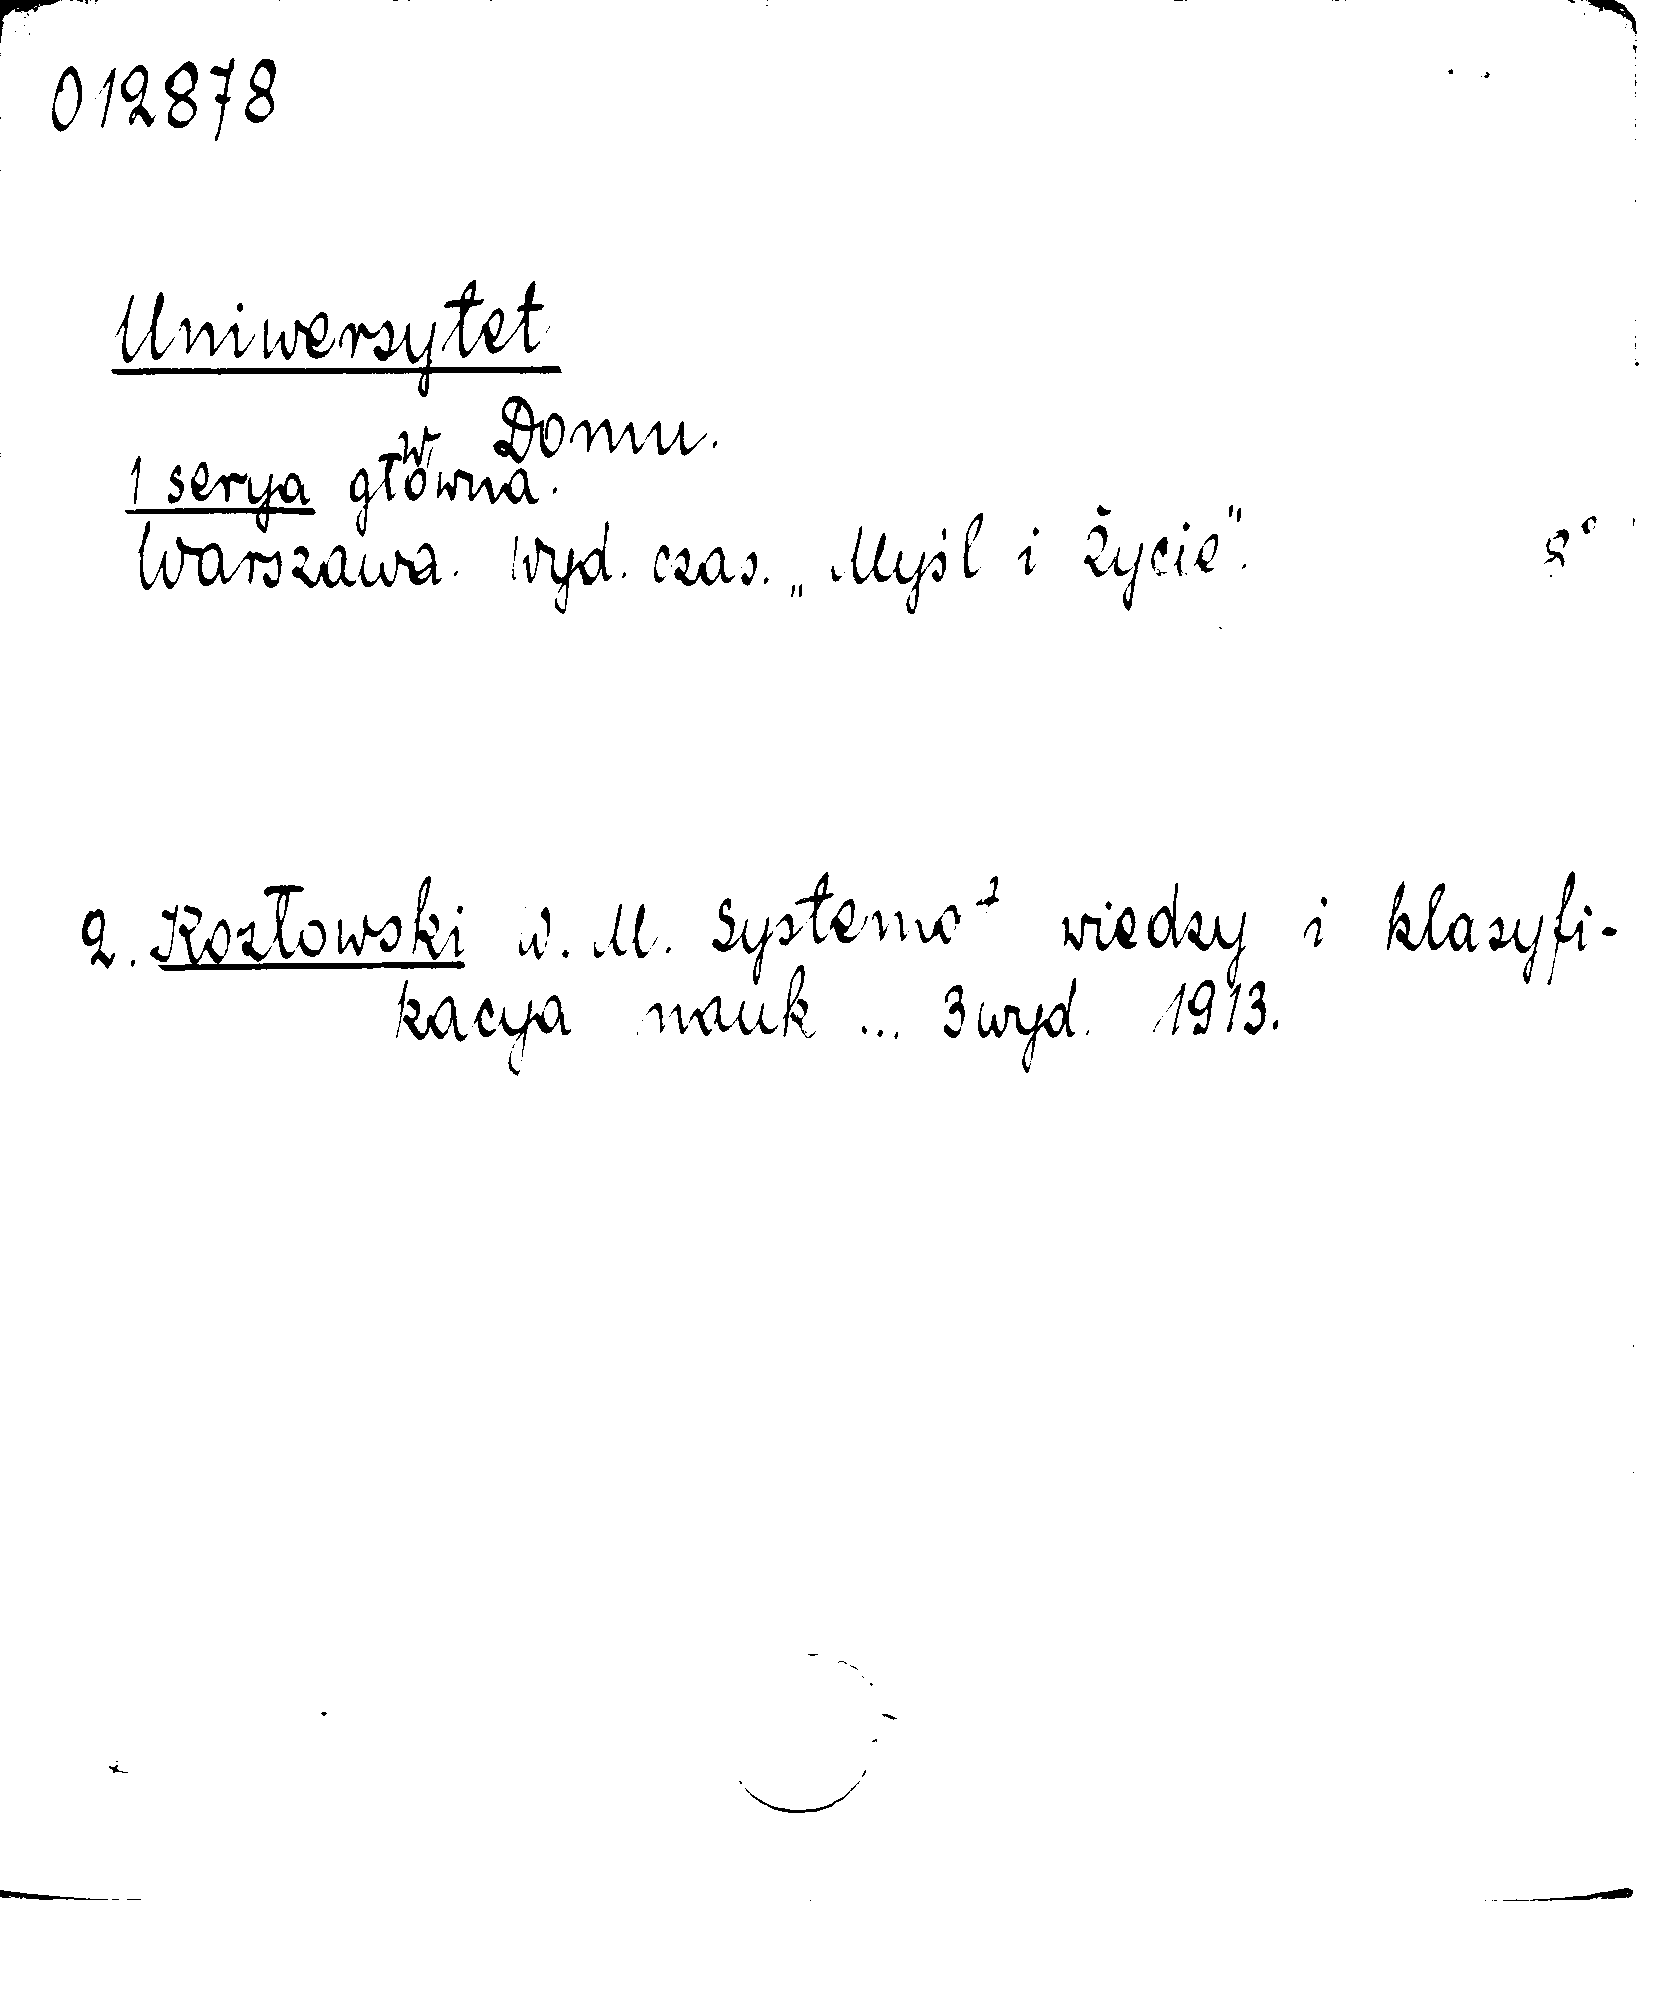 012878
Uniwersytet
w Domu.
1 serya główna.
Warszawa. Wyd. czas. „Myśl i Życie". 8°
2. Kozłowski W. M. Systemat wiedzy i klasyfi-
kacya nauk ... 3 wyd. 1913.